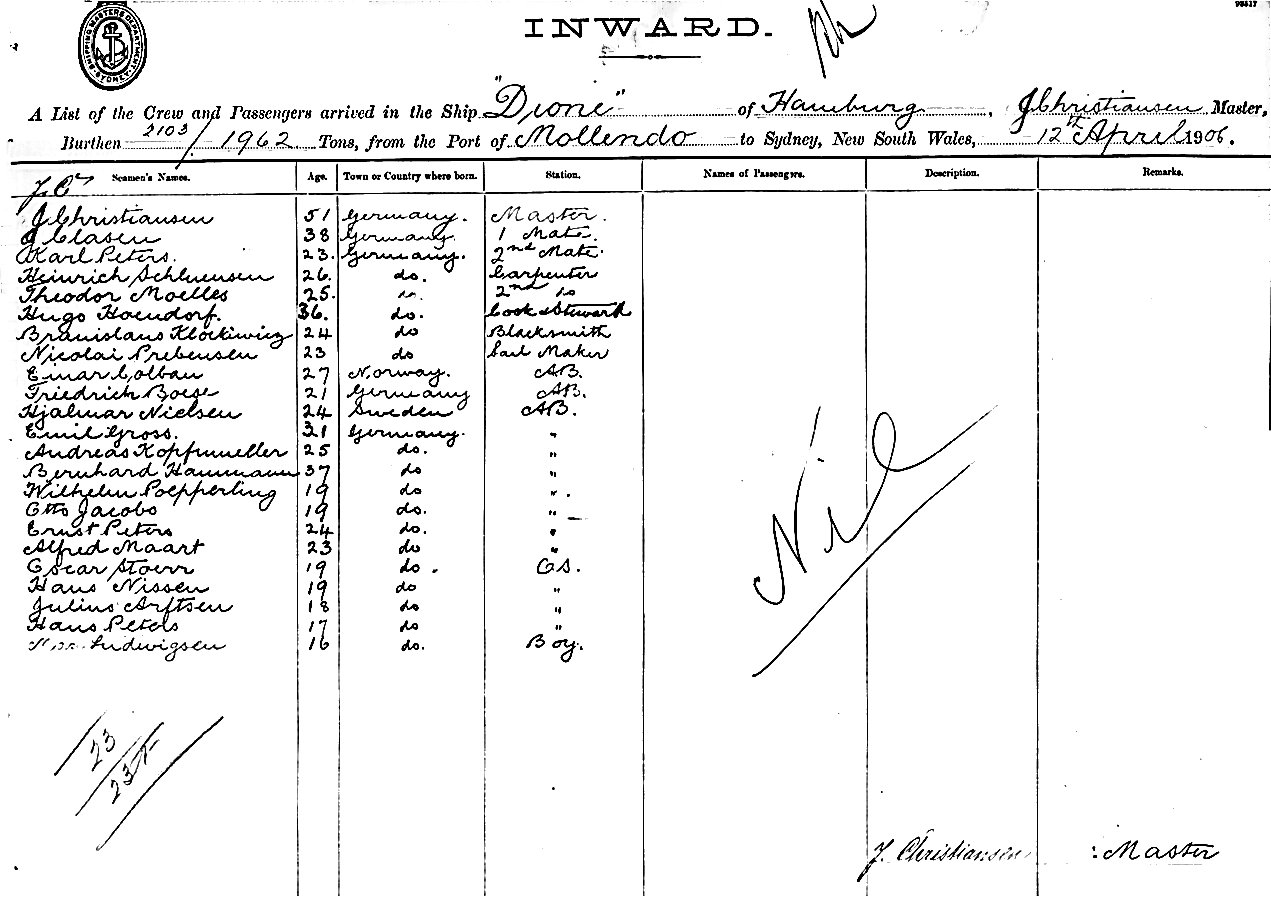 93517
SHIPPING MASTERS DEPARTMENT SYDNEY
INWARD.
A List of the Crew and Passengers arrived in the Ship "Dione" of Hamburg, J Christiansen Master,
Burthen 2103/1962 Tons, from the Port of Mollendo to Sydney, New South Wales, 12th April 1906.
J.C. Seamen's Names. Age. Town or Country where born. Station. Names of Passengers. Description. Remarks.
J Christiansen 51 Germany. Master.
J Clasen 38 Germany. 1 Mate.
Karl Peters. 23. Germany. 2nd Mate.
Heinrich 26. do. Carpenter
Theodor Moelles 25. do. 2nd do
Hugo Hoendorf. 36. do. Cook & Steward
Branislaus Klockiwicz 24 do Blacksmith
Nicolai Prebensen 23 do Sail Maker
Einar Colbau 27 Norway. AB.
Friedrich Boese 21 Germany AB.
Hjalmar Nielsen 24 Sweden AB.
Emil Gross. 31 Germany. "
Andreas Kopfmueller 25 do. "
Bernhard Hanmann 37 do "
Wilhelm Poepperling 19 do ".
Otto Jacobs 19 do. "
Ernst Peters 24 do. "
Alfred Maart 23 do "
Oscar Stoerr 19 do. OS.
Hans Nissen 19 do "
Julius Arftsen 18 do "
Hans Peters 17 do "
Ludwigsen 16 do. Boy.
Nil
23
23
J. Christiansen : Master